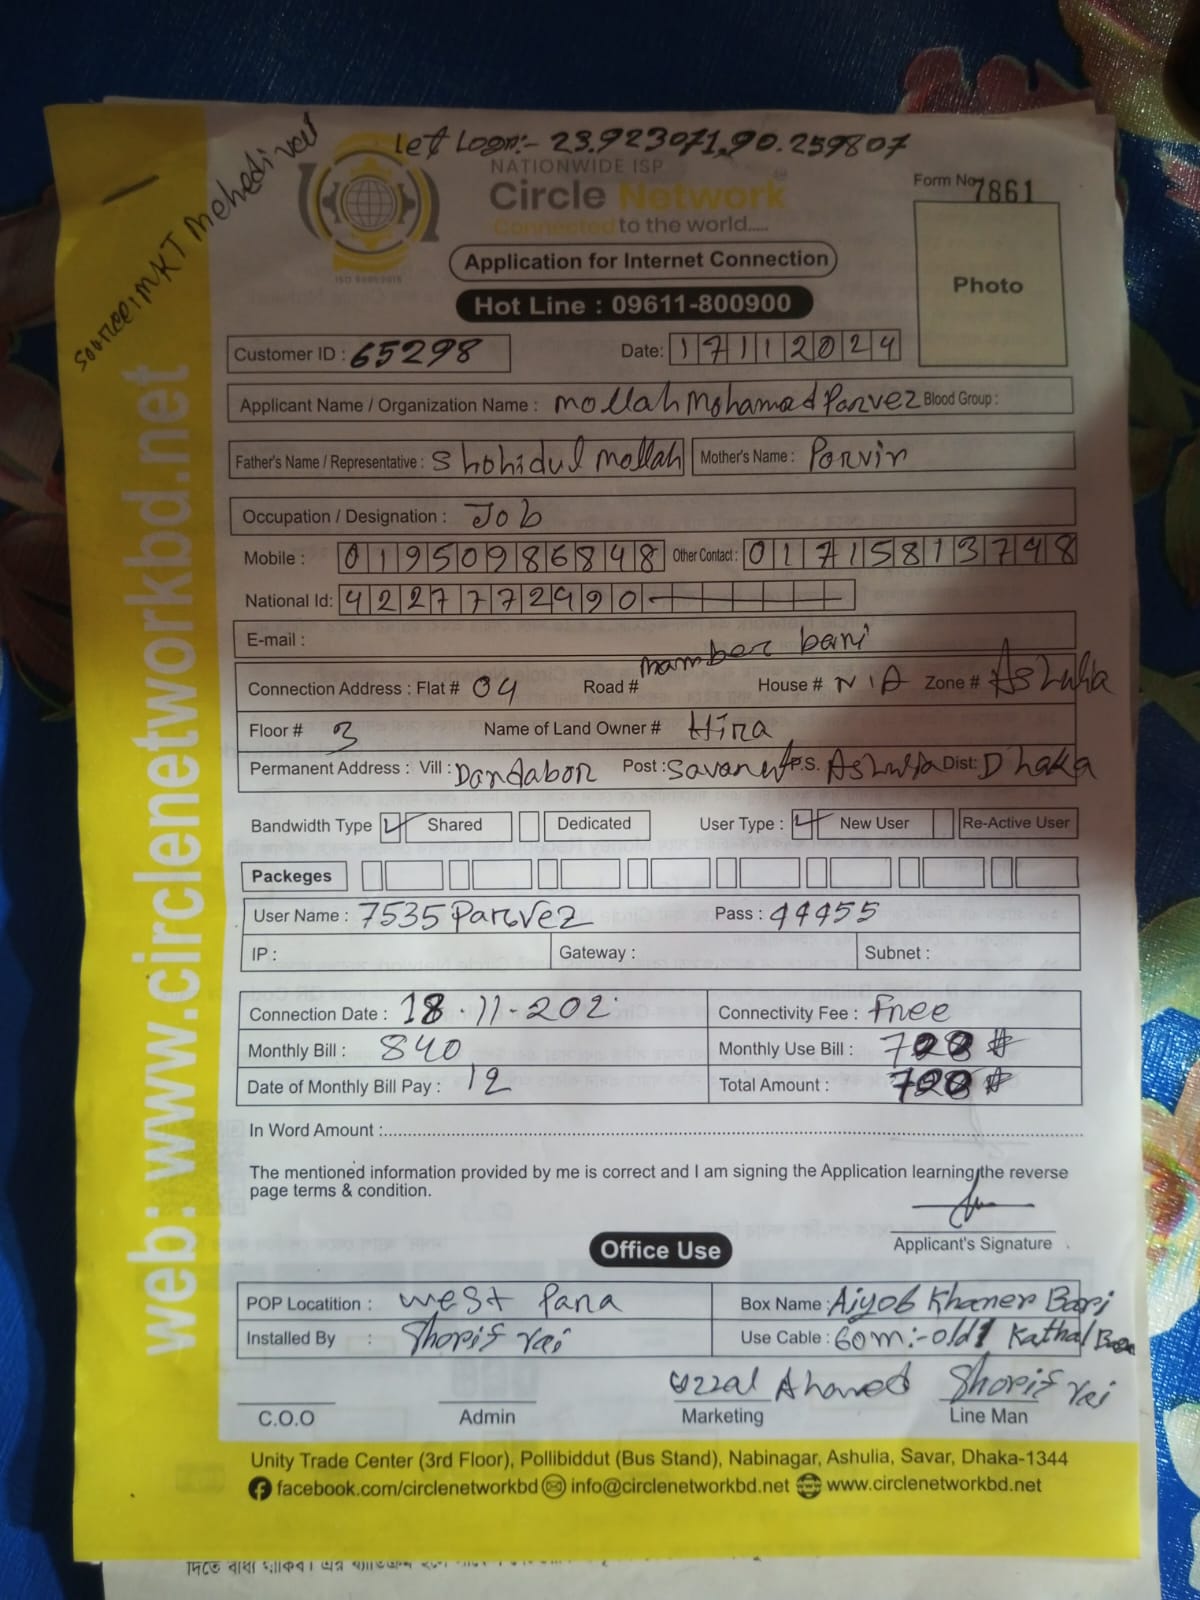 Let Logn:- 23.923071,90.259807
source: MKT Mehedi vai
NATIONWIDE ISP
Circle Network
Connected to the world.....
ISO 9001:2015
Form No 7861
Photo
Application for Internet Connection
Hot Line : 09611-800900
Customer ID : 65298 Date: 17112024
Applicant Name / Organization Name : Mollah Mohamad Parvez Blood Group :
Father's Name / Representative : Shohidul Mollah Mother's Name : Parvin
Occupation / Designation : Job
Mobile : 01950986848 Other Contact : 01715813748
National Id: 4227772490
E-mail :
Connection Address : Flat # 04 Road # mamber bari House # N/A Zone # Ashulia
Floor # 3 Name of Land Owner # Hira
Permanent Address : Vill : Dandabor Post : Savar P.S. Ashulia Dist: Dhaka
Bandwidth Type Shared Dedicated User Type : New User Re-Active User
Packeges
User Name : 7535 Parvez Pass : 44455
IP : Gateway : Subnet :
Connection Date : 18-11-202 Connectivity Fee : Free
Monthly Bill : 840 Monthly Use Bill :
Date of Monthly Bill Pay : 12 Total Amount :
In Word Amount :
The mentioned information provided by me is correct and I am signing the Application learning the reverse
page terms & condition.
Applicant's Signature
Office Use
POP Locatition : West Para Box Name : Aiyob Khaner Bari
Installed By : Shorif vai Use Cable : 60m:-old1 Kathal
Uzzal Ahamed Shorif vai
C.O.O Admin Marketing Line Man
Unity Trade Center (3rd Floor), Pollibiddut (Bus Stand), Nabinagar, Ashulia, Savar, Dhaka-1344
facebook.com/circlenetworkbd info@circlenetworkbd.net www.circlenetworkbd.net
web: www.circlenetworkbd.net